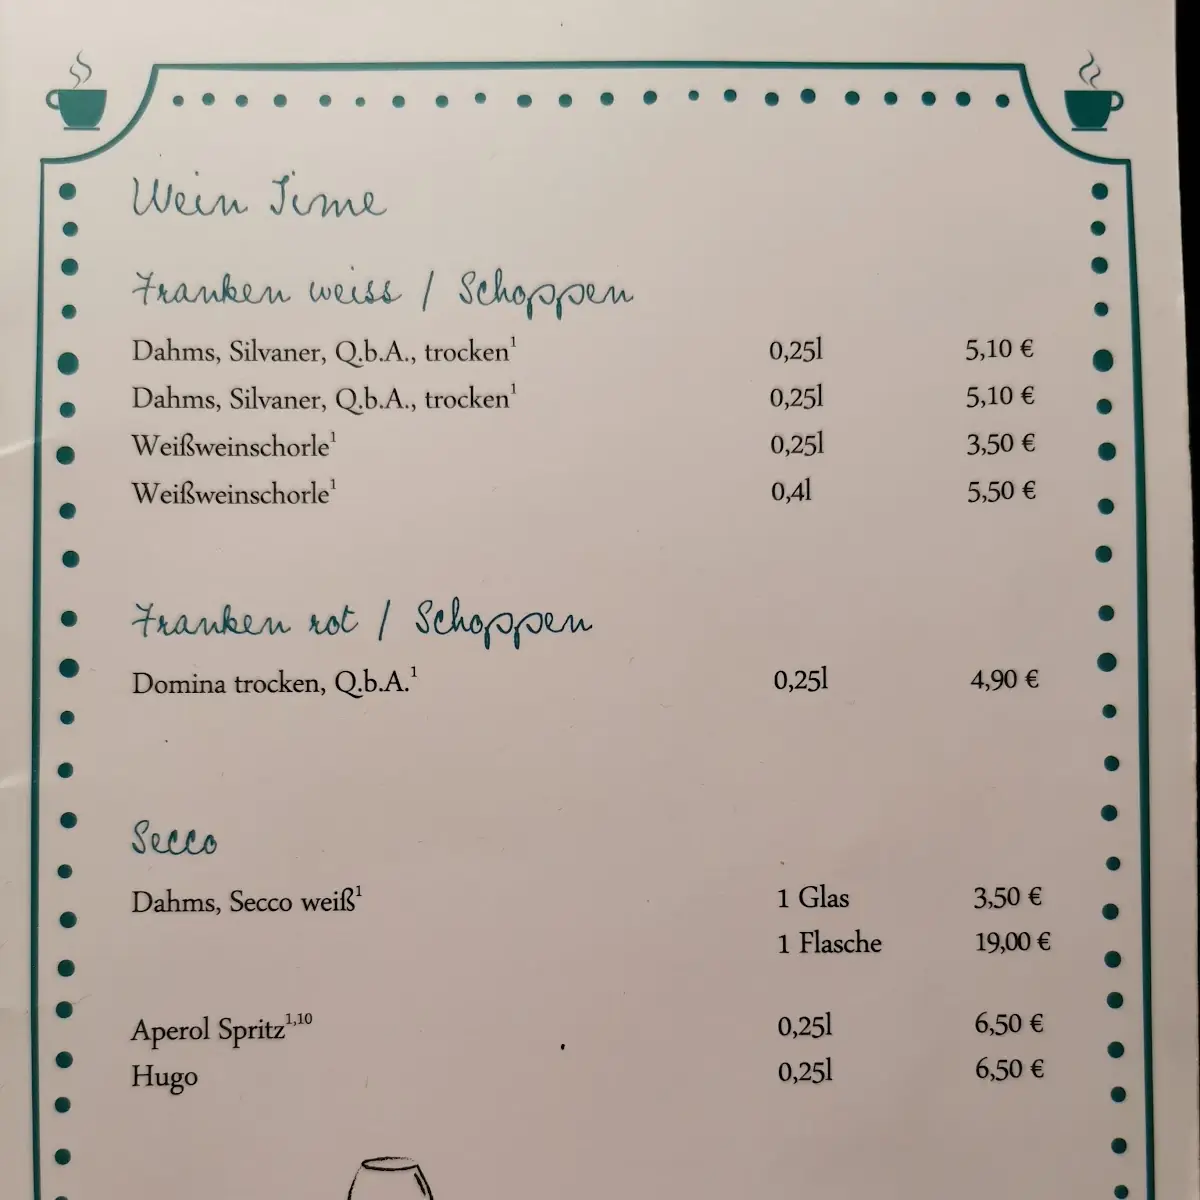 Wein Time
Franken weiss / Schoppen
Dahms, Silvaner, Q.b.A., trocken¹ 0,25l 5,10 €
Dahms, Silvaner, Q.b.A., trocken¹ 0,25l 5,10 €
Weißweinschorle¹ 0,25l 3,50 €
Weißweinschorle¹ 0,4l 5,50 €
Franken rot / Schoppen
Domina trocken, Q.b.A.¹ 0,25l 4,90 €
Secco
Dahms, Secco weiß¹ 1 Glas 3,50 €
1 Flasche 19,00 €
Aperol Spritz¹,¹⁰ 0,25l 6,50 €
Hugo 0,25l 6,50 €